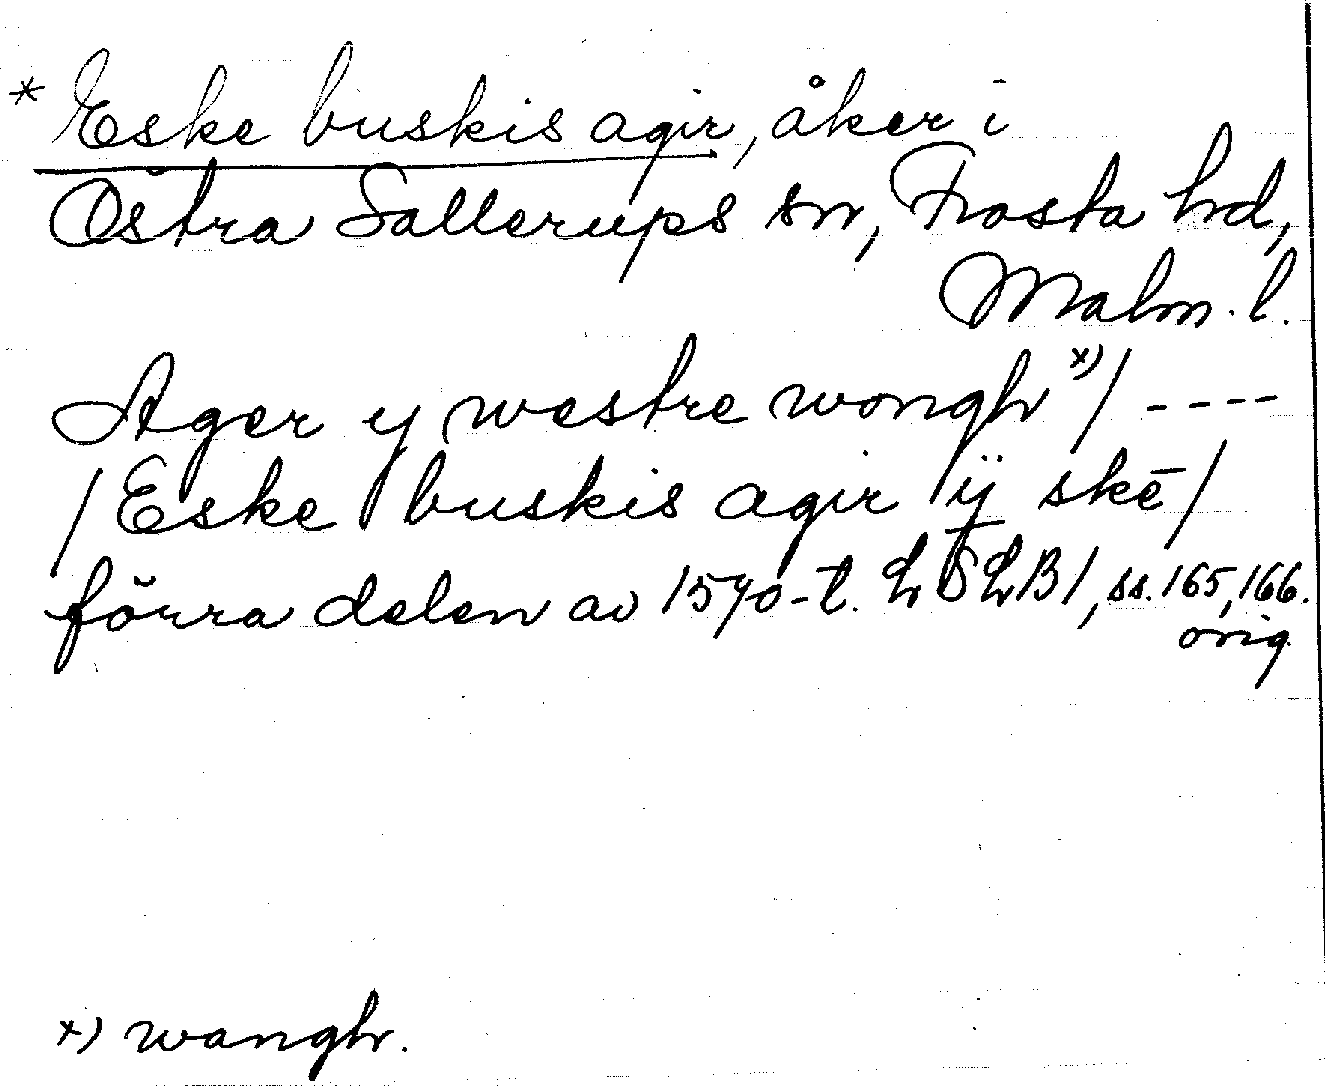 * Eske buskis agir, åker i
Östra Sallerups sn, Frosta hd,
Malm. l.
Ager y westre wongh x) / ----
/ Eske buskis agir ÿ skē /
förra delen av 1570-t. LSLB 1, ss. 165, 166.
orig.
x) wangh.